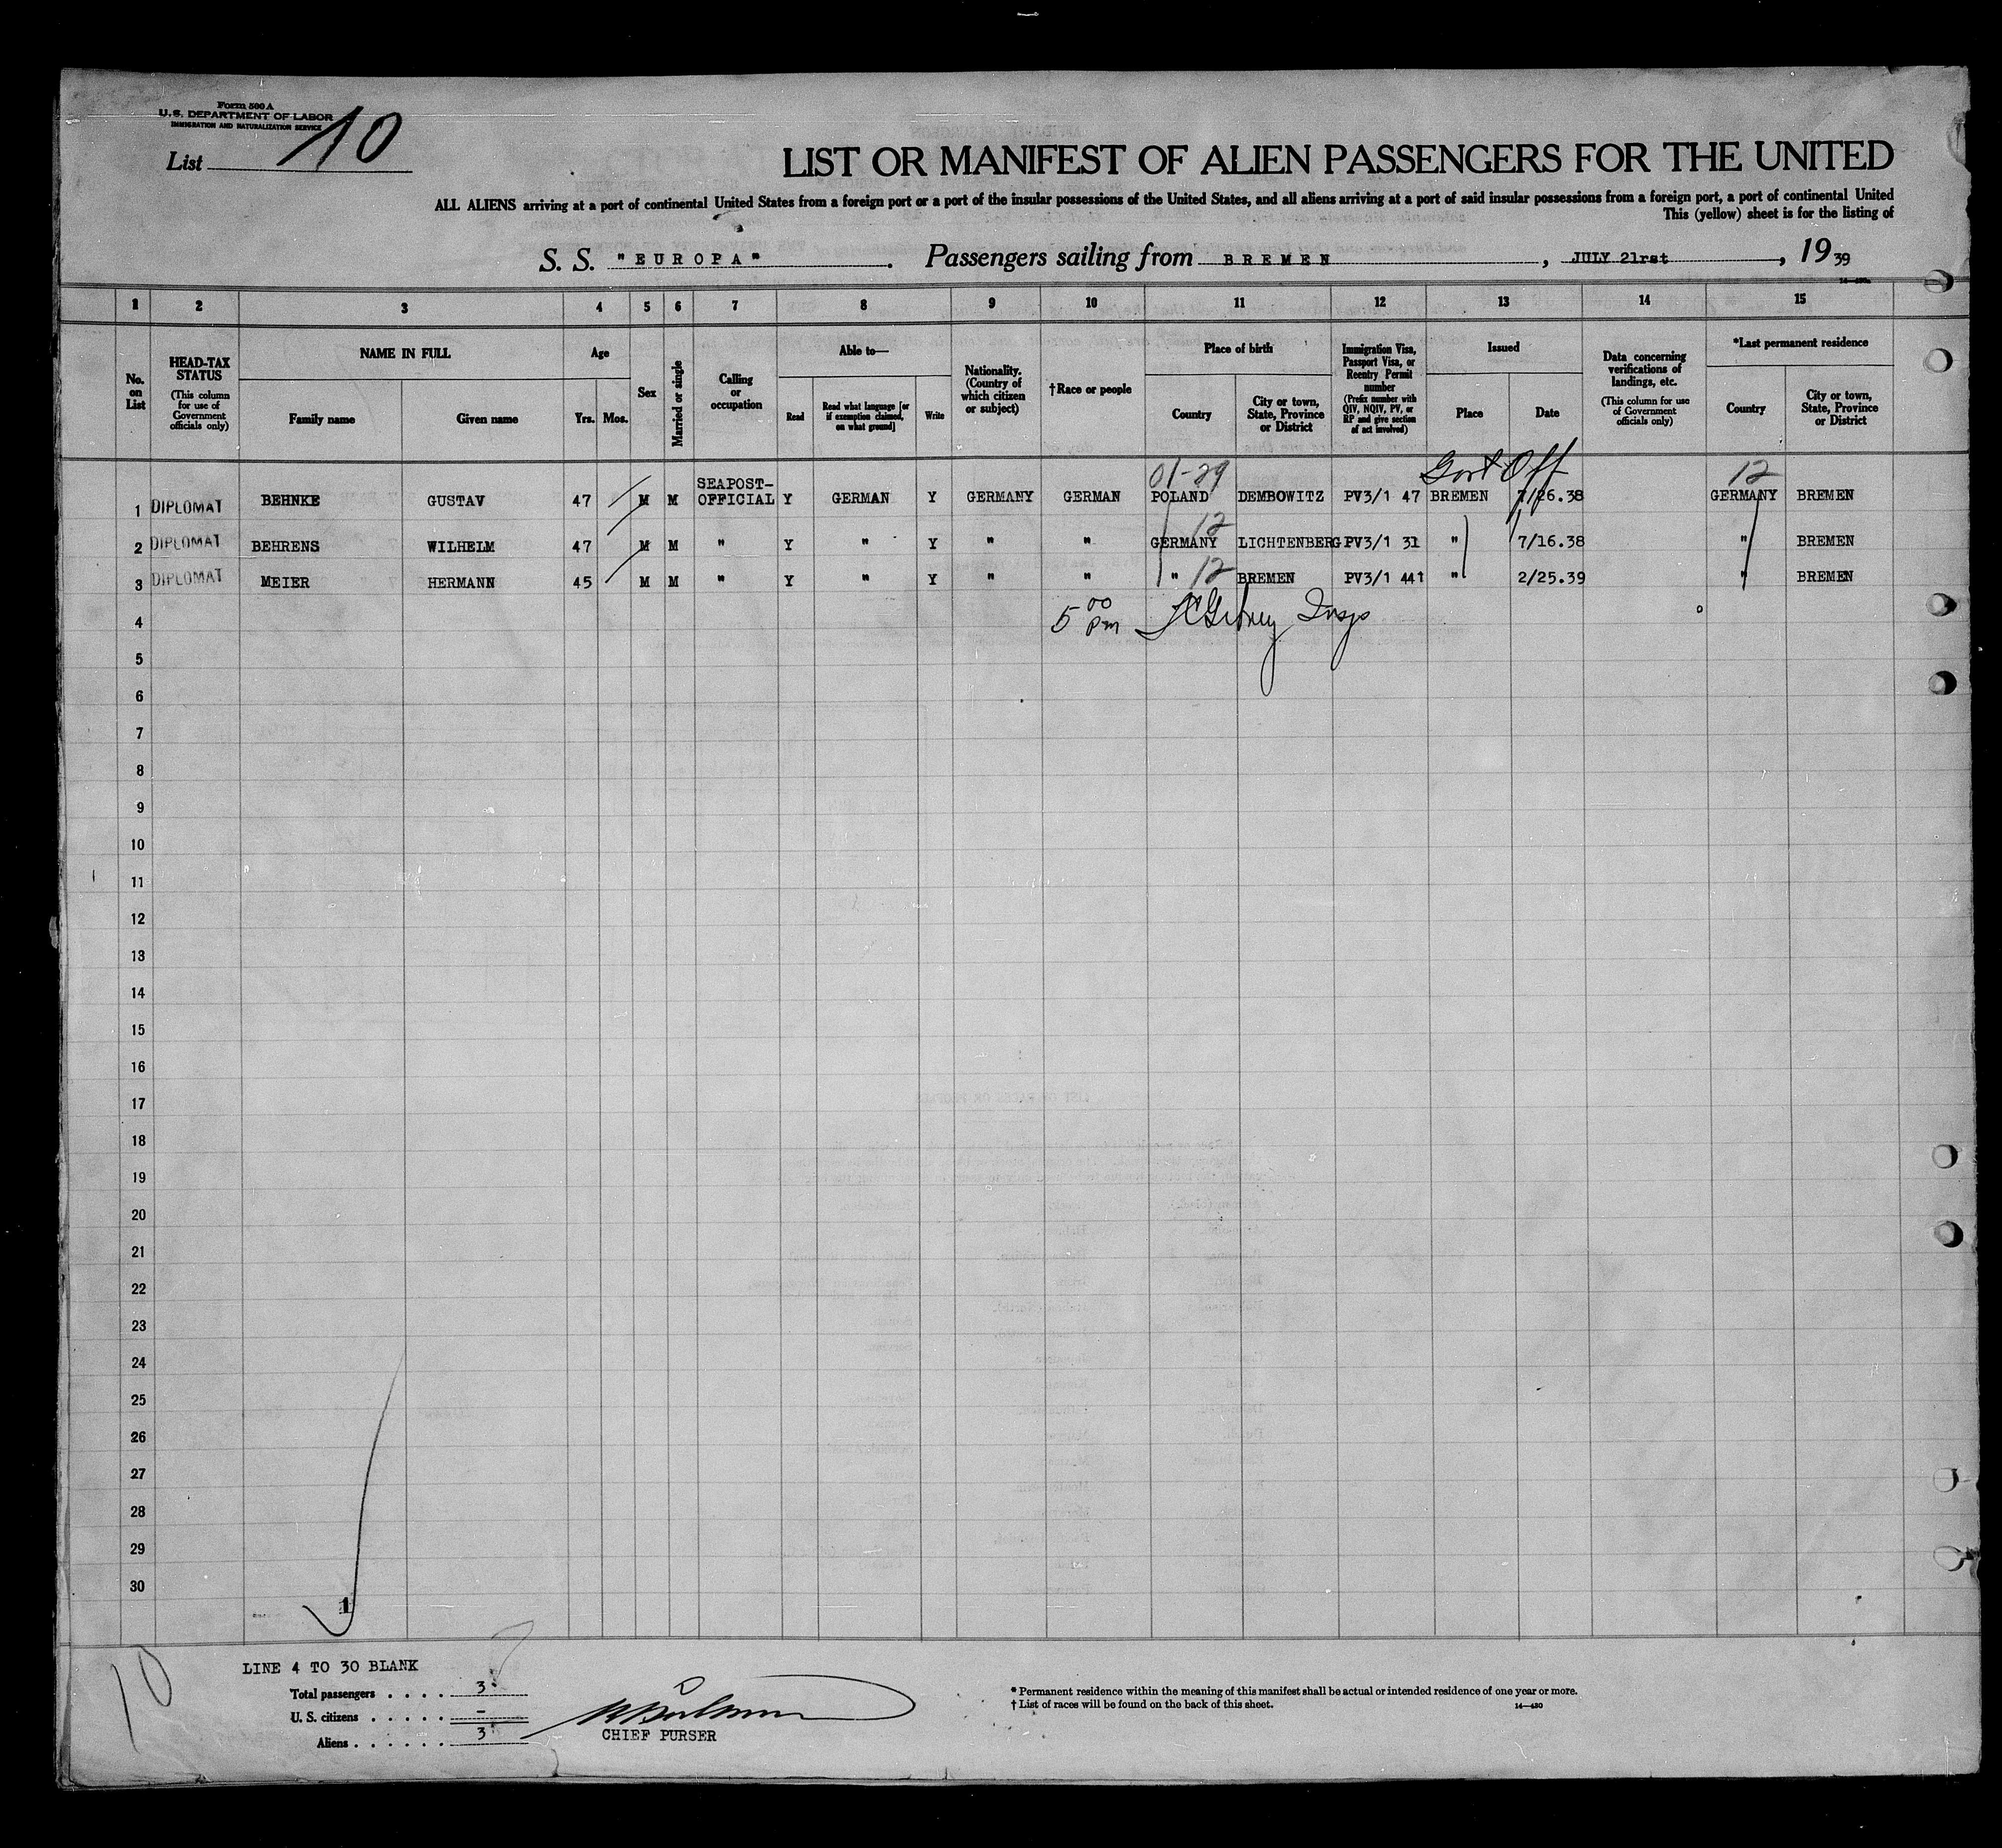 Form 500 A
U. S. DEPARTMENT OF LABOR
IMMIGRATION AND NATURALIZATION SERVICE
List 10
LIST OR MANIFEST OF ALIEN PASSENGERS FOR THE UNITED
ALL ALIENS arriving at a port of continental United States from a foreign port or a port of the insular possessions of the United States, and all aliens arriving at a port of said insular possessions from a foreign port, a port of continental United
This (yellow) sheet is for the listing of
S. S. "EUROPA". Passengers sailing from BREMEN, JULY 21rst, 19 39
1 2 3 4 5 6 7 8 9 10 11 12 13 14 15
No. on List
HEAD-TAX STATUS
(This column for use of Government officials only)
NAME IN FULL
Family name
Given name
Age
Yrs. Mos.
Sex
Married or single
Calling or occupation
Able to—
Read
Read what language [or if exemption claimed, on what ground]
Write
Nationality. (Country of which citizen or subject)
†Race or people
Place of birth
Country
City or town, State, Province or District
Immigration Visa, Passport Visa, or Reentry Permit number
(Prefix number with QIV, NQIV, PV, or RP and give section of act involved)
Issued
Place
Date
Data concerning verifications of landings, etc.
(This column for use of Government officials only)
*Last permanent residence
Country
City or town, State, Province or District
01-29 Govt Off 12
1 DIPLOMAT BEHNKE GUSTAV 47 M M SEAPOST-OFFICIAL Y GERMAN Y GERMANY GERMAN POLAND DEMBOWITZ PV3/1 47 BREMEN 7/26.38 GERMANY BREMEN
12
2 DIPLOMAT BEHRENS WILHELM 47 M M " Y " Y " " GERMANY LICHTENBERG PV3/1 31 " 7/16.38 " BREMEN
3 DIPLOMAT MEIER HERMANN 45 M M " Y " Y " " " 12 BREMEN PV3/1 441 " 2/25.39 " BREMEN
4 5 00 pm Insp
5
6
7
8
9
10
11
12
13
14
15
16
17
18
19
20
21
22
23
24
25
26
27
28
29
30
1
10
LINE 4 TO 30 BLANK
Total passengers . . . . 3
U. S. citizens . . . . . -
Aliens . . . . . . 3
CHIEF PURSER
* Permanent residence within the meaning of this manifest shall be actual or intended residence of one year or more.
† List of races will be found on the back of this sheet.
14—480